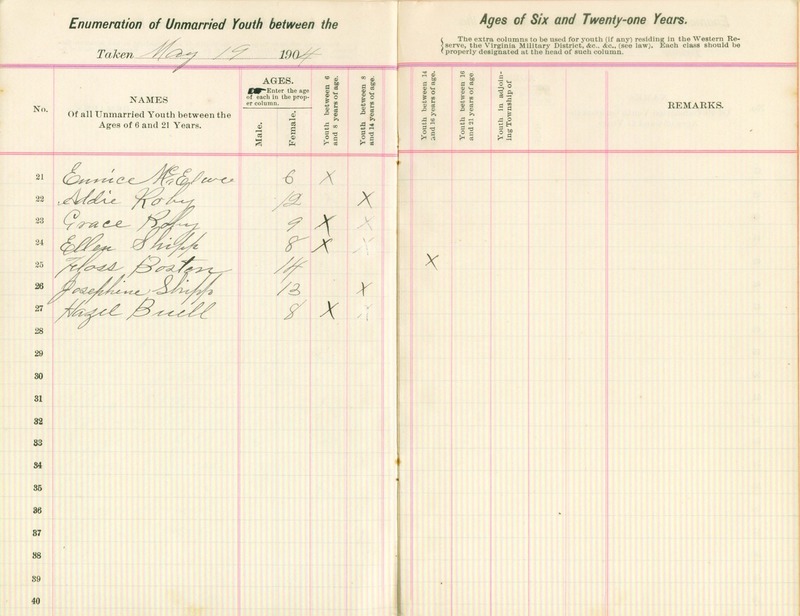 Enumeration of Unmarried Youth between the
Taken May 19 1904
No.
NAMES
Of all Unmarried Youth between the
Ages of 6 and 21 Years.
AGES.
Enter the age
of each in the prop-
er column.
Male.
Female.
Youth between 6
and 8 years of age.
Youth between 8
and 14 years of age.
21 Eunice McElwee 6 X
22 Addie Roby 12 X
23 Grace Roby 9 X X
24 Ellen Shipp 8 X X
25 Floss Boston 14 X
26 Josephine Shipp 13 X
27 Hazel Buell 8 X X
28
29
30
31
32
33
34
35
36
37
38
39
40
Ages of Six and Twenty-one Years.
The extra columns to be used for youth (if any) residing in the Western Re-
serve, the Virginia Military District, &c., &c., (see law). Each class should be
properly designated at the head of such column.
Youth between 14
and 16 years of age.
Youth between 16
and 21 years of age
Youth in adjoin-
ing Township of
REMARKS.